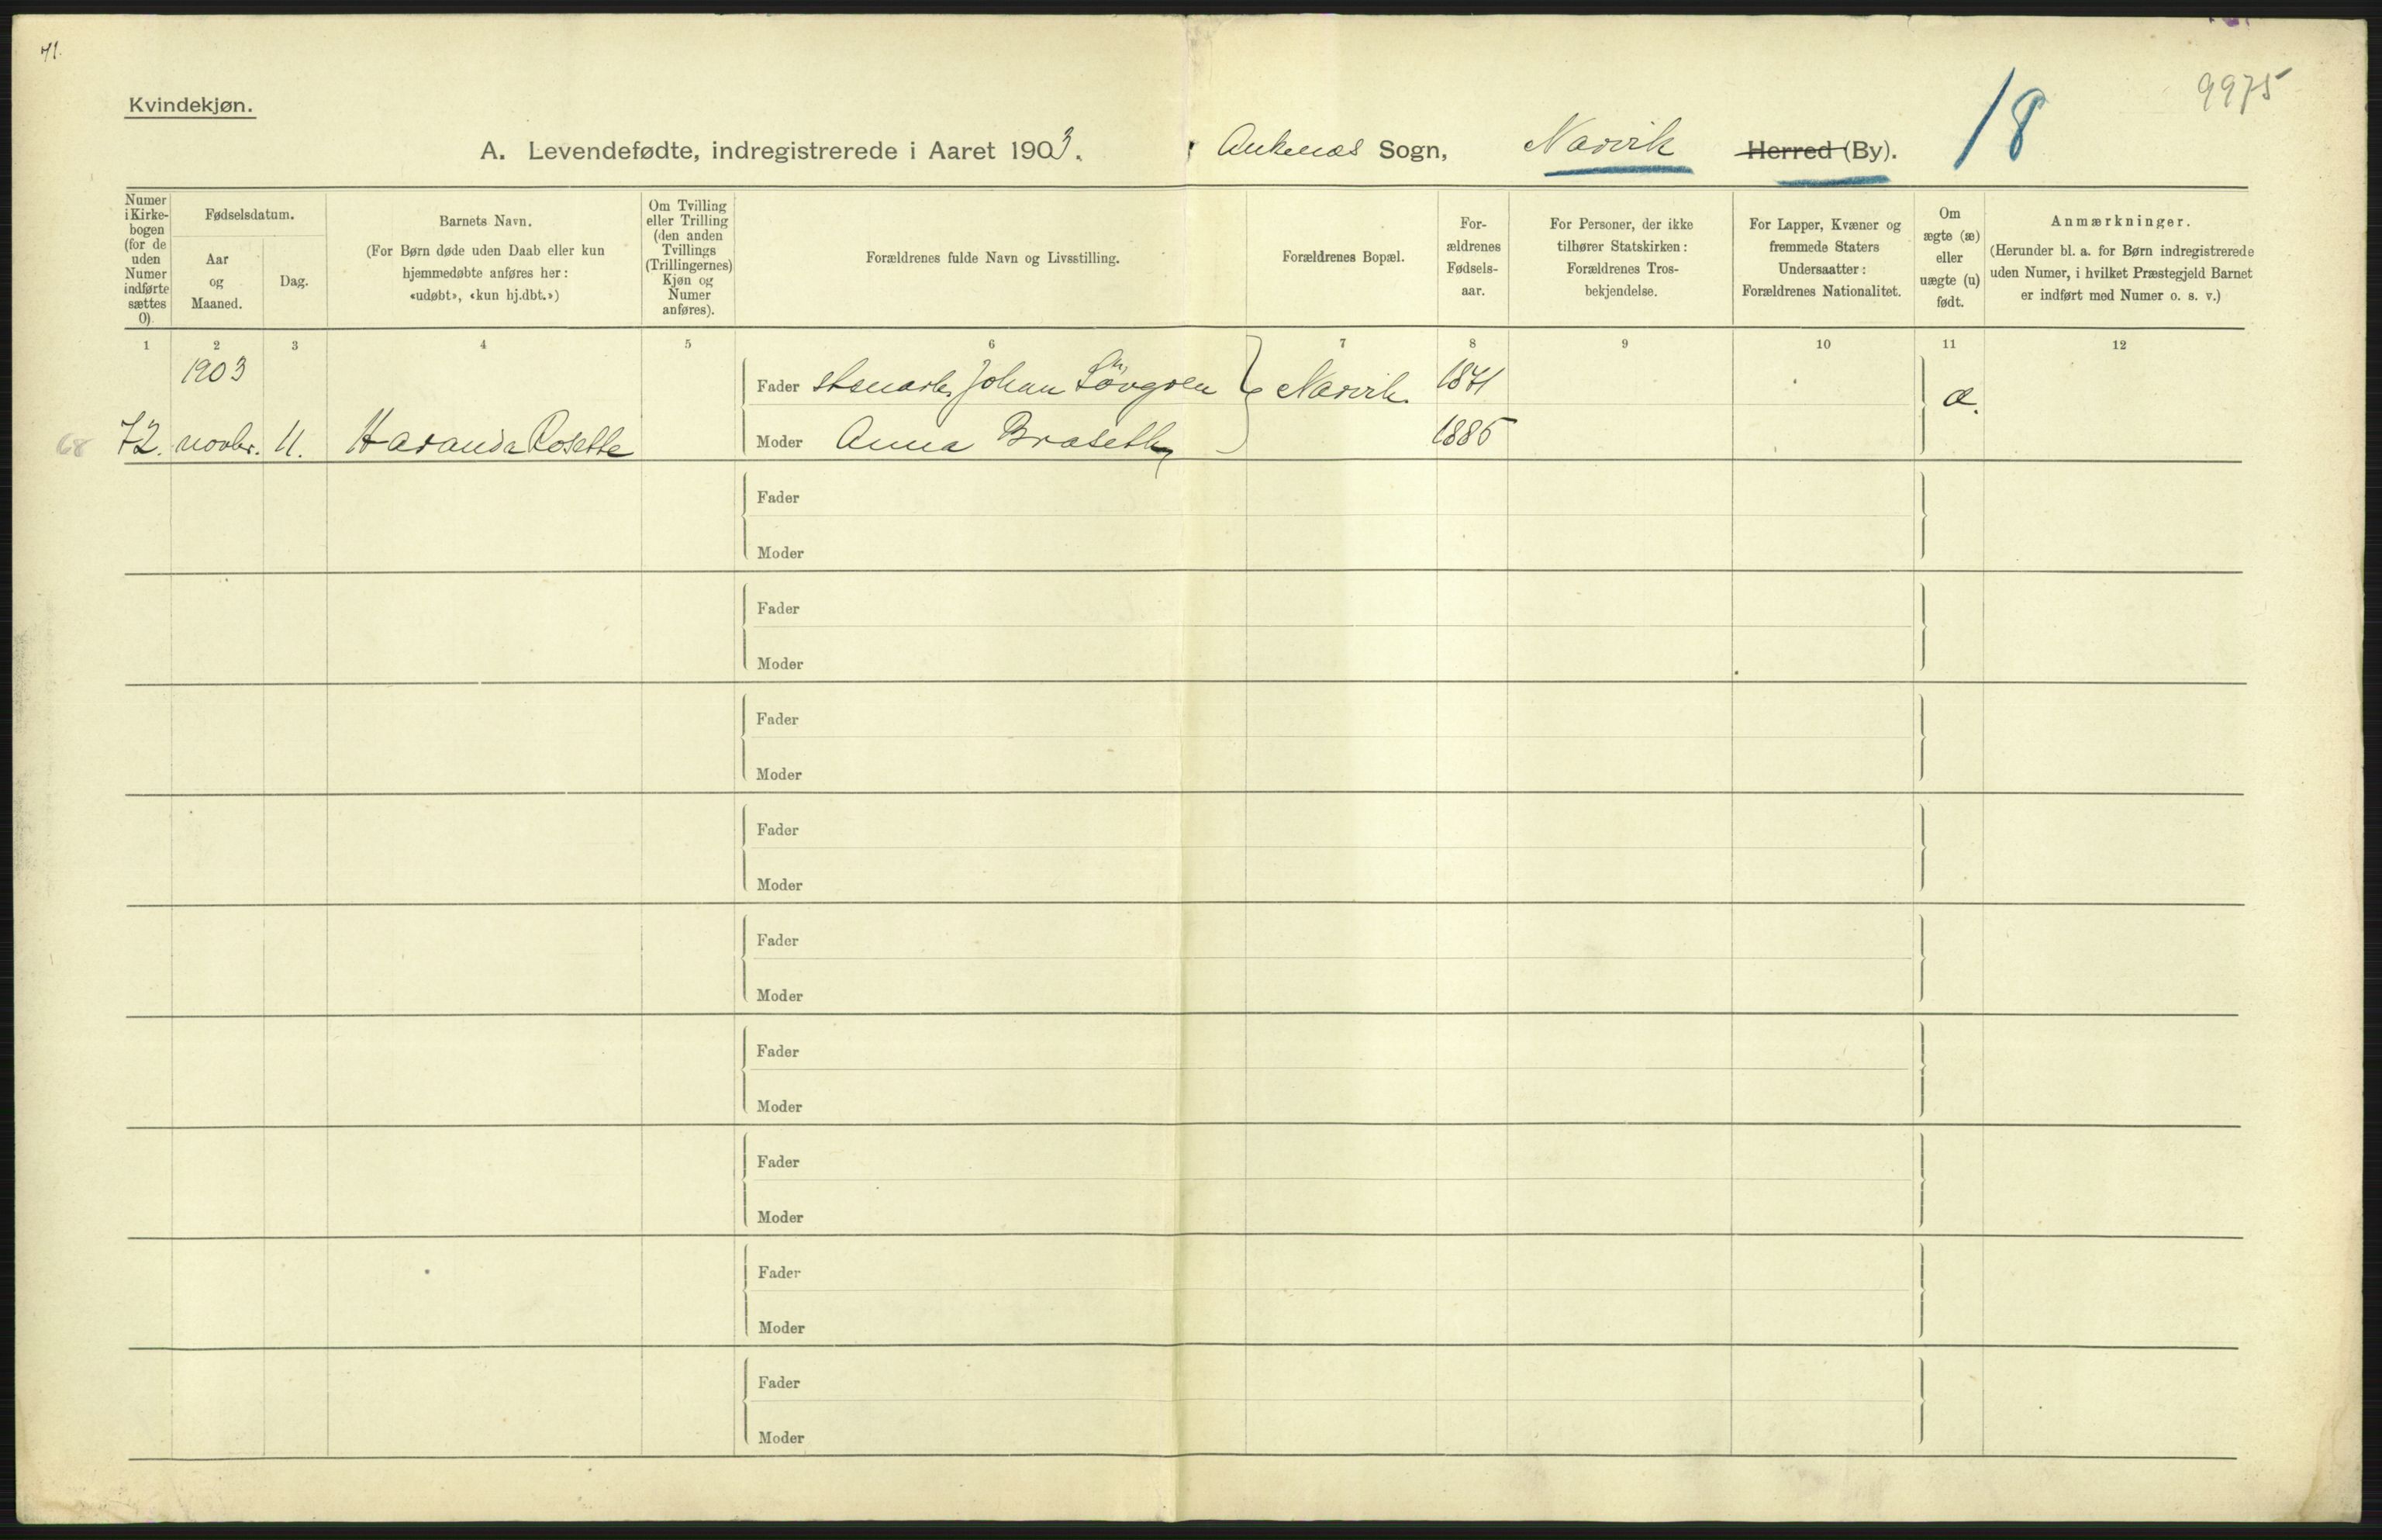 71.
9975
Kvindekjøn.
18
A. Levendefødte, indregistrerede i Aaret 1903. Ankenæs Sogn, Narvik Herred (By).
Numer i Kirkebogen (for de uden Numer indførte sættes 0).
Fødselsdatum.
Aar og Maaned.
Dag.
Barnets Navn.
(For Børn døde uden Daab eller kun
hjemmedøbte anføres her:
«udøbt», «kun hj.dbt.»)
Om Tvilling
eller Trilling
(den anden
Tvillings
(Trillingernes)
Kjøn og
Numer
anføres).
Forældrenes fulde Navn og Livsstilling.
Forældrenes Bopæl.
For-
ældrenes
Fødsels-
aar.
For Personer, der ikke
tilhører Statskirken:
Forældrenes Tros-
bekjendelse.
For Lapper, Kvæner og
fremmede Staters
Undersaatter:
Forældrenes Nationalitet.
Om
ægte (æ)
eller
uægte (u)
født.
Anmærkninger.
(Herunder bl. a. for Børn indregistrerede
uden Numer, i hvilket Præstegjeld Barnet
er indført med Numer o. s. v.)
1 2 3 4 5 6 7 8 9 10 11 12
1903
Fader Stenarb. Johan Lövgren Narvik. 1871 æ.
68 72. novbr. 11. Haranda Rosette
Moder Anna Braseth 1885
Fader
Moder
Fader
Moder
Fader
Moder
Fader
Moder
Fader
Moder
Fader
Moder
Fader
Moder
Fader
Moder
Fader
Moder